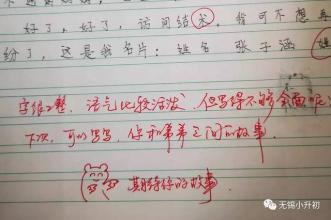 好了，好了，访问结末，我可不想再
纷了，这是我名片：姓名 张子涵
字很工整，语气比较活泼，但写得不够全面呢：
下次，可以写写，你和弟弟之间的故事。
期待你的故事。
无锡小升初